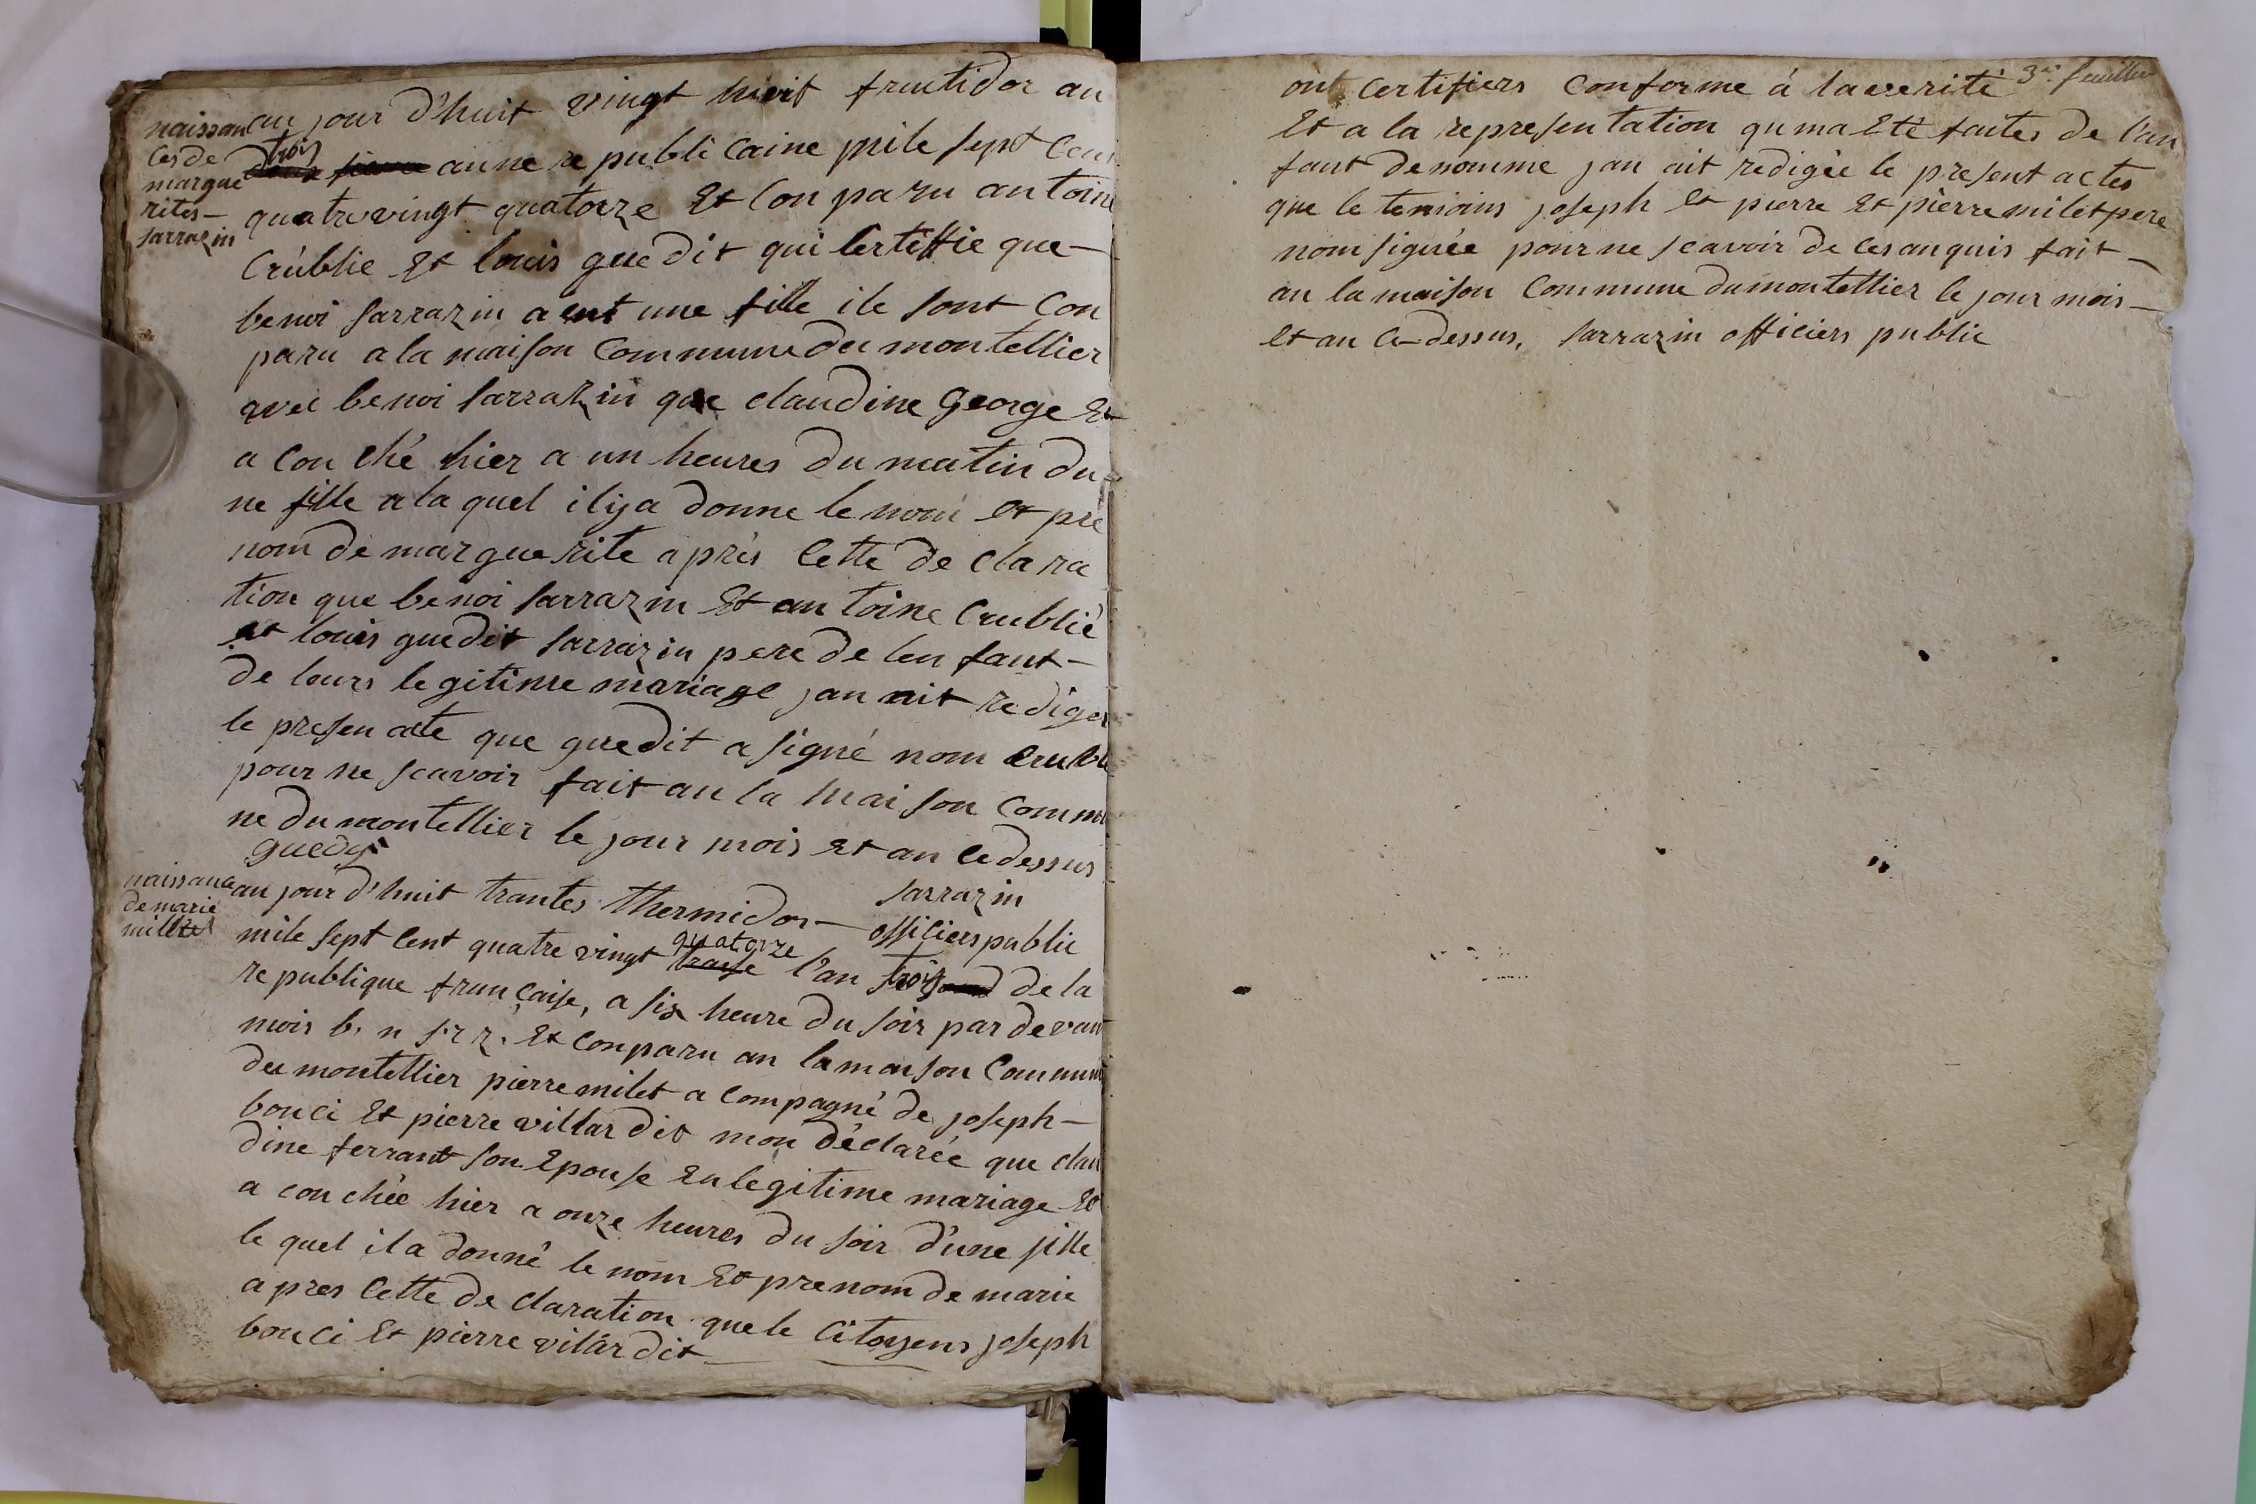 naissan
ces de
margue
rites -
sarrazin
au jour d'huit vingt huit fructidor an
trois aune republi caine mile sept cens
quatrevingt quatorze Et Conparu antoine
Crublie Et louis guedit qui Certiffie que -
benoi sarrazin a eut une fille ile sont Con
paru a la maison Commune du montellier
avec benoi sarrazin que claudine george Et
a Couché hier a un heures du matin du
ne fille a la quel il ya donne le nom et pré
nom de marguerite après Cette de clara
tion que benoi sarrazin Et antoine Crublié
et louis guedit sarrazin pere de len fant -
de leurs legitime mariage jan nit rediger
le presen acte que guedit a signé nom Crublie
pour ne scavoir fait an la maison Commu
ne du montellier le jour mois et an cedessus
guedy
sarrazin
officiers public
naissance
de marie
millet
au jour d'huit trantes thermidor -
mile sept Cent quatre vingt traise quatorze l'an trois de la
republique française, a six heure du soir par devan
mois b. n s.r.z. Et Conparu an la maison Commune
du montellier pierre milet a Compagné de joseph -
bouci Et pierre villardit mon déclarée que clau
dine ferrant son Epouse En legitime mariage Et
a couchée hier a onze heures du soir d'une fille
le quel il a donné le nom Et prenom de marie
apres Cette de claration que le Citoyens joseph
bouci Et pierre vilardit -
3me feuille
ont Certifiers Conforme á la veritè
Et a la representation qu ma Eté faites de l'an
fant denomme jan ait redigée le present actes
que le temoins joseph Et pierre Et pierre milet pere
nom signée pour ne scavoir de ces anquis fait -
an la maison Commune du montellier le jour mois -
et an Ce-dessus, sarrazin officiers public